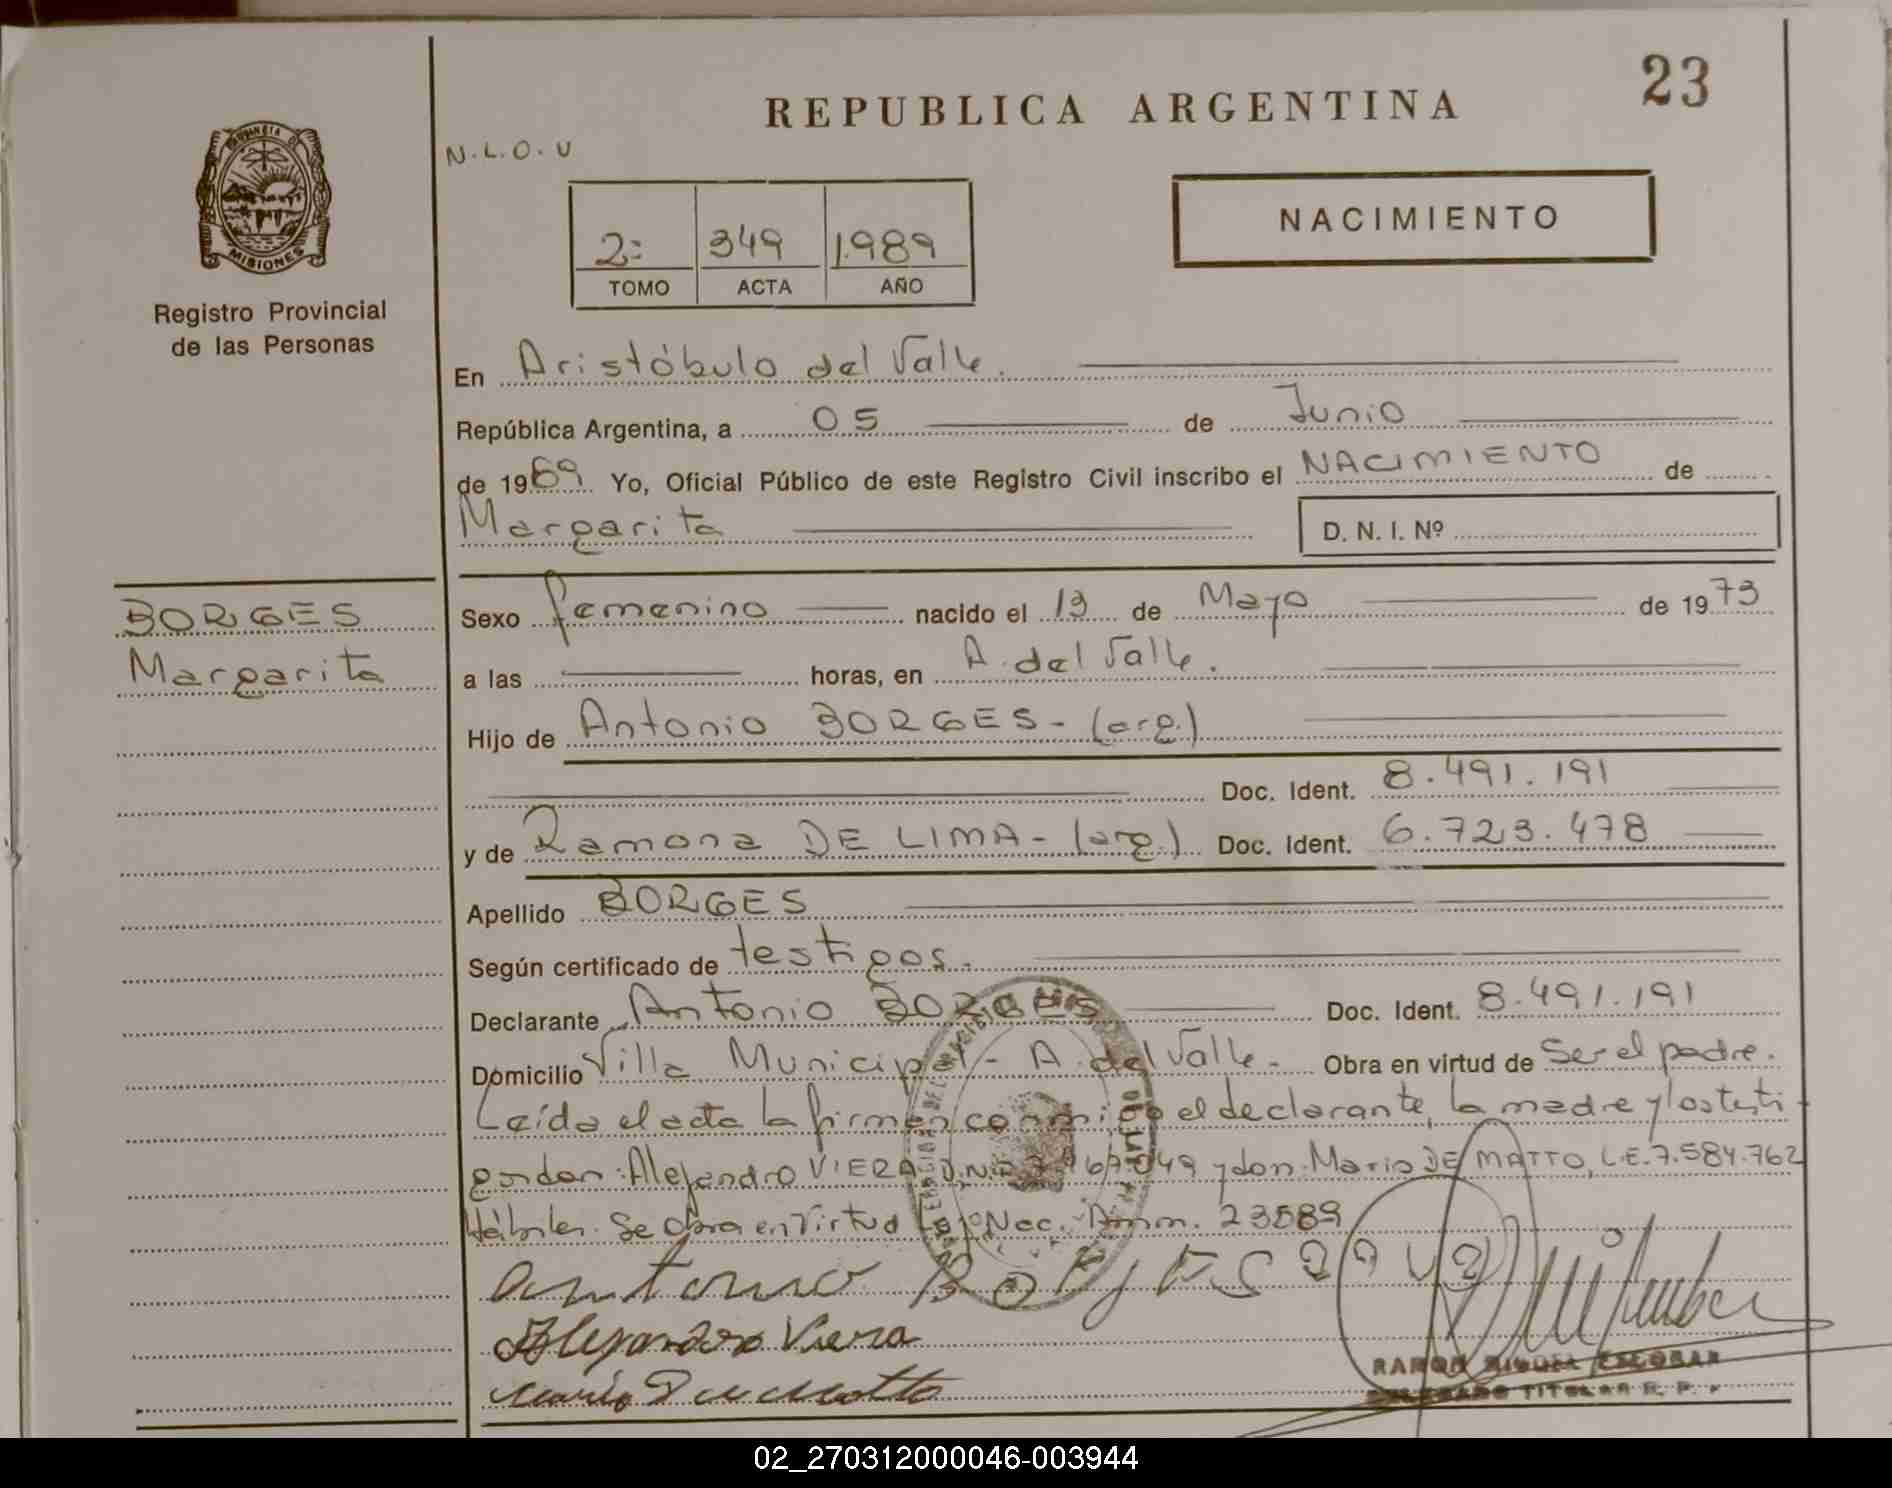 23
REPUBLICA ARGENTINA
N.L.O.U
PROVINCIA
MISIONES
Registro Provincial
de las Personas
2º 349 1.989
TOMO ACTA AÑO
NACIMIENTO
En Aristóbulo del Valle.
República Argentina, a 05 de Junio
de 1989 Yo, Oficial Público de este Registro Civil inscribo el NACIMIENTO de
Margarita D. N. I. Nº
BORGES
Margarita
Sexo femenino nacido el 13 de Mayo de 1973
a las horas, en A. del Valle.
Hijo de Antonio BORGES - (arg.)
Doc. Ident. 8.491.191
y de Ramona DE LIMA - (arg.) Doc. Ident. 6.723.478
Apellido BORGES
Según certificado de testigos.
Declarante Antonio BORGES Doc. Ident. 8.491.191
Domicilio Villa Municipal - A. del Valle. Obra en virtud de Ser el padre.
Leída el acta la firman conmigo el declarante, la madre y los testi
gos don: Alejandro VIERA D.N.I. y don: Mario DE MATTO, L.E. 7.584.762
Hábiles. Se obra en virtud Nac. 23589
Antonio Borges
Alejandro Viera
Mario De Matto
RAMON MIGUEL ESCOBAR
DELEGADO TITULAR R. P.
02_270312000046-003944